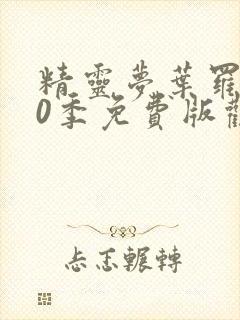 精靈夢葉羅
0季免費版觀
忐忑輾轉